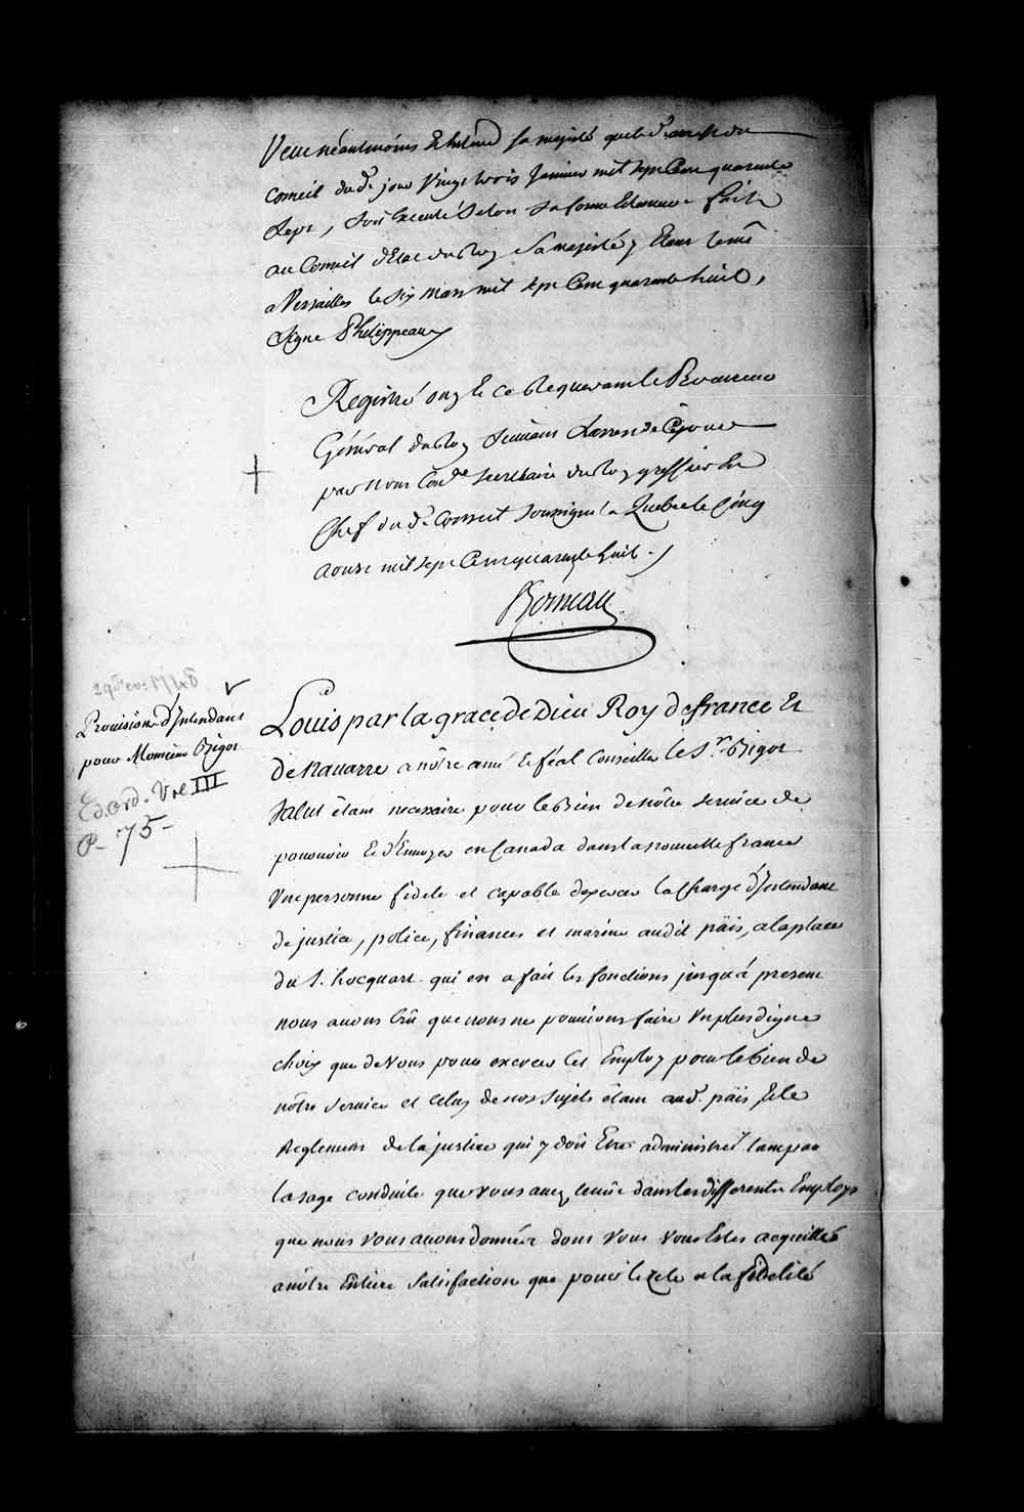 Veut néantmoins Et Entend sa majesté que le d. arrest du
Conseil dud. jour vingt trois Janvier mil sept Cent quarante
Sept, soit Executé Selon sa forme Et teneur fait
au Conseil d'Etat du Roy Sa majesté y Etant tenu
a Versailles le Six Mars mil sept Cent quarante huit,
Signé Phelippeaux
Registré ouy Et ce Requerant le Procureur
Général du Roy Suivant
par Nous Con.er Secretaire du Roy greffier En
Chef dud. Conseil soussigné a Quebec le Cinq
aoust mil sept Cent quarante huit.
Boisseau
Provisions d'Intendant
pour Monsieur Bigot
Ed. Ord. Vol III
P- 75-
Louis par la grace de Dieu Roy de france Et
de Navarre a nôtre amé Et féal Conseiller le S.r Bigot
Salut étant necessaire pour le Bien de nôtre service de
pourvoir Et d'Envoyer en Canada dans la nouvelle france
Une personne fidele et capable d'exercer la Charge d'Intendant
de justice, police, finances et marine audit païs, a la place
du S. hocquart qui en a fait les fonctions jusqu'à present
nous avons Crû que nous ne pouvions faire un plus digne
choix que de Vous pour exercer Cet Employ pour le bien de
nôtre service et celuy de nos sujets étant aud. païs, Et le
Reglement de la justice qui y doit Etre administreé tant par
la sage conduite que vous avez tenüe dans les differents Employs
que nous vous avons donnéz dont Vous vous Estes acquitté
a nôtre Entiere Satisfaction que pour le zele et la fidelité